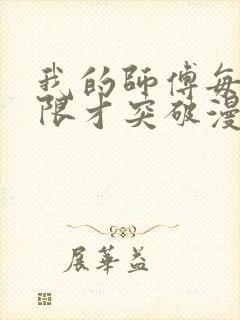 我的師傅每
限才突破漫
展華益